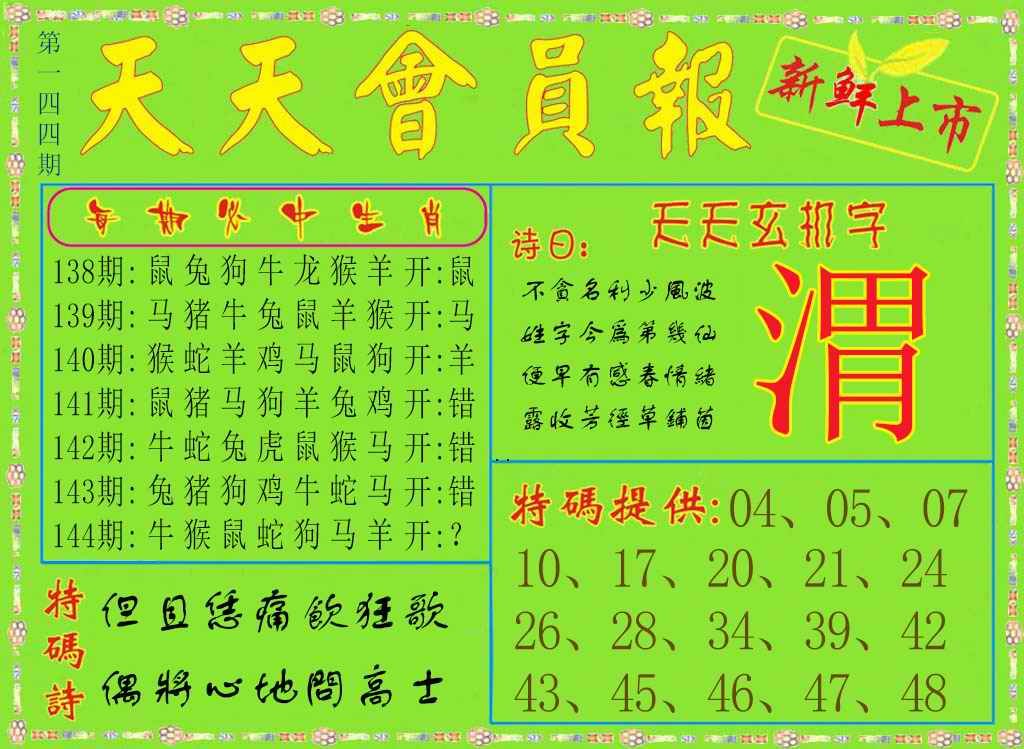 第一四四期
天天會員報
新鮮上市
每期必中生肖
138期: 鼠 兔 狗 牛 龙 猴 羊 开:鼠
139期: 马 猪 牛 兔 鼠 羊 猴 开:马
140期: 猴 蛇 羊 鸡 马 鼠 狗 开:羊
141期: 鼠 猪 马 狗 羊 兔 鸡 开:错
142期: 牛 蛇 兔 虎 鼠 猴 马 开:错
143期: 兔 猪 狗 鸡 牛 蛇 马 开:错
144期: 牛 猴 鼠 蛇 狗 马 羊 开:?
天天玄机字
诗曰:
不貪名利少風波
姓字今爲第幾仙
便早有感春情緒
露收芳徑草鋪茵
渭
特碼提供: 04、05、07
10、17、20、21、24
26、28、34、39、42
43、45、46、47、48
特碼詩
但且恁痛飲狂歌
偶將心地問高士